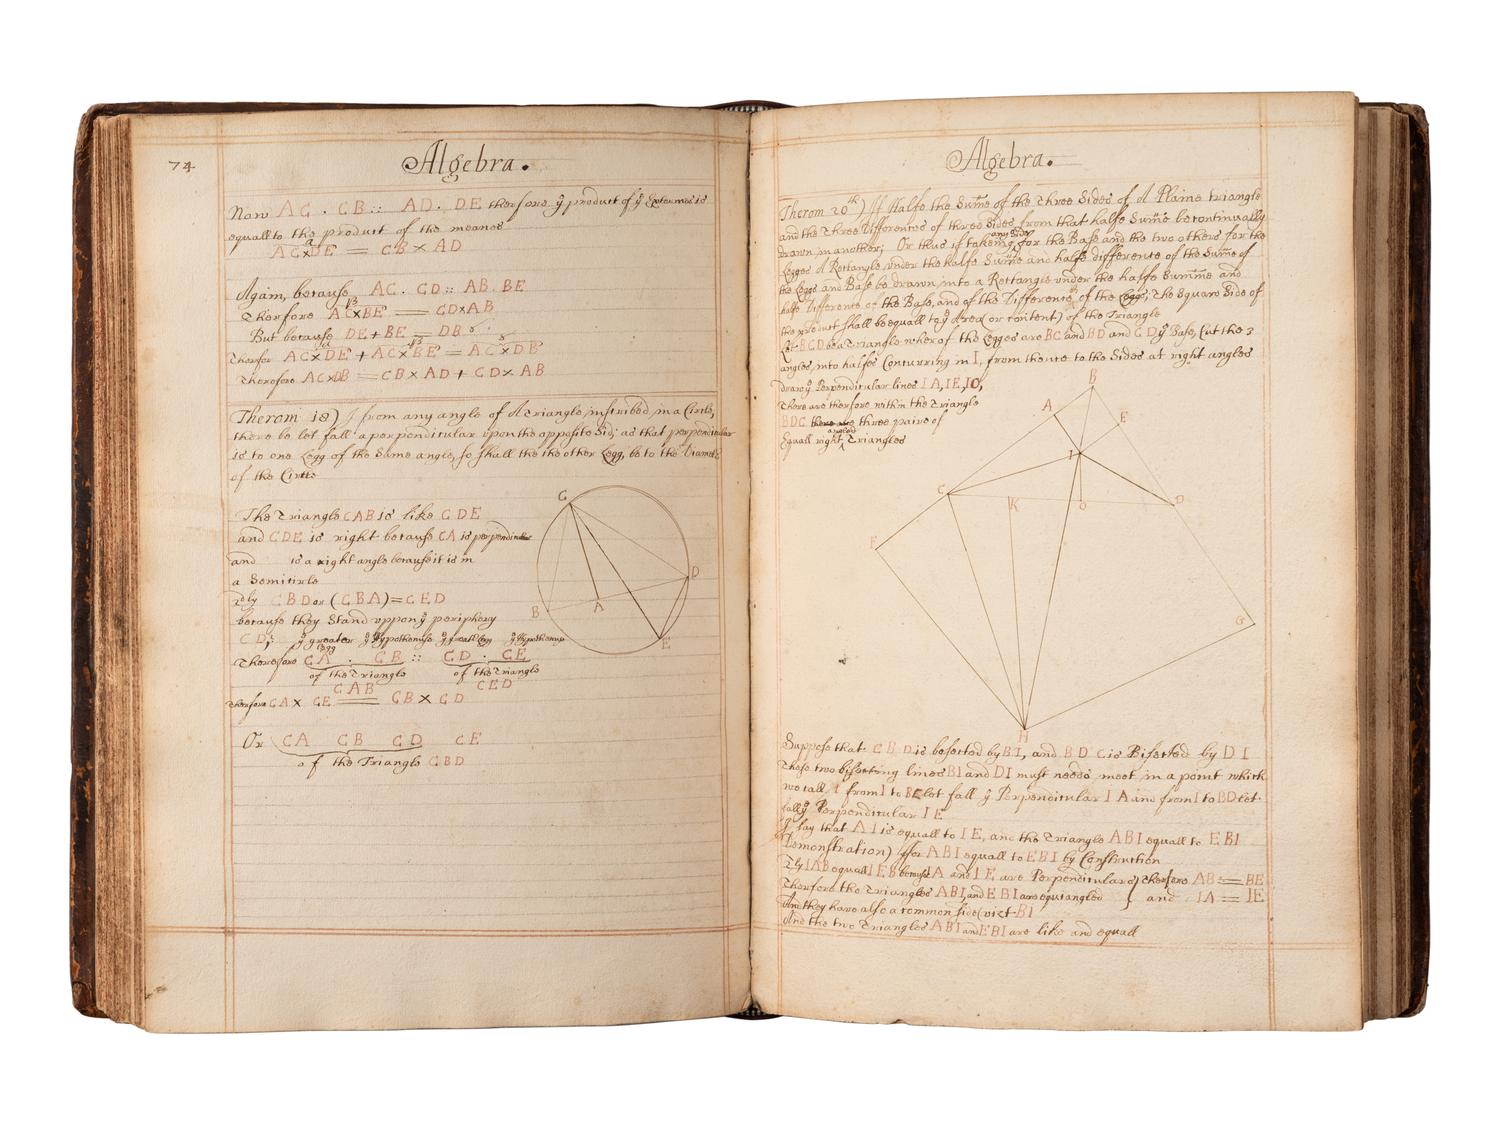 74
Algebra.
Now AC . CB :: AD . DE therfore ÿ product of ÿ Extermes is
equall to the product of the meanes
AC×DE = CB × AD
Again, because AC . CD :: AB . BE
Therfore AC×BE = CD×AB
But because DE + BE = DB
Therfor AC×DE + AC×BE = AC×DB
Therefore AC×DB = CB × AD + CD × AB
Therom 19) If from any angle of A Triangle, inscribed in a Circle,
there be let fall a perpendicular upon the opposite Sid; as that perpendicular
is to one Legg of the Same angle, so shall the the other Legg, be to the Diameter
of the Circle
C
D
B
A
E
The Triangle CAB is like CDE
and CDE is right because CA is perpendicular
and is a right angle because it is in
a Semicirle
CBD or (CBA) = CED
because they Stand uppon ÿ periphery
CD; ÿ greater Legg ÿ Hypothenuse ÿ great Legg ÿ Hypothenus
Therefore CA . CB :: CD . CE
of the Triangle of the Triangle
CAB CED
Therfore CA × CE = CB × CD
Or CA CB CD CE
of the Triangle CBD
Algebra.
Therom 20th) If Halfe the Sum̃e of the Three Sides of A Plaine triangle
and the Three Differences of three Sides from that halfe Sum̃e be continually
drawn in another; Or thus if takeing any Side for the Base and the two others for the
Legges A Rectangle under the halfe Sum̃e and halfe difference of the Sum̃e of
the Leggs and Base be drawn into a Rectangle under the halfe Summe and
halfe Difference of the Base, and of the Difference of the Leggs; The Square Side of
the product shall be equall to ÿ Area (or content) of the Triangle
Let BCD be a Triangle wherof the Legges are BC and BD and CD ÿ Base, Cut the 3
angles into halfes Concurring in I, from thence to the Sides at right angles
draw ÿ Perpendicular lines IA, IE, IO,
There are therfore within the Triangle
BDC there are three paires of
Equall right angled Triangles
B
A
E
I
C
K
O
D
F
G
H
Suppose that CBD is besected by BI, and BDC is Bisected by DI
These two bisecting lines BI and DI must needs meet in a point which
we call I from I to BC let fall ÿ Perpendicular IA and from I to BD let
fall ÿ Perpendicular IE
I say that AI is equall to IE, and the Triangle ABI equall to EBI
Demonstration) for ABI equall to EBI by Construction
IAB equall IEB because IA and IE are Perpendiculars) Therfore AB = BE
Therfore the Triangles ABI, and EBI are equiangled } and IA = IE
And they have also a common side (vizt BI
And the two Triangles ABI and EBI are like and equall